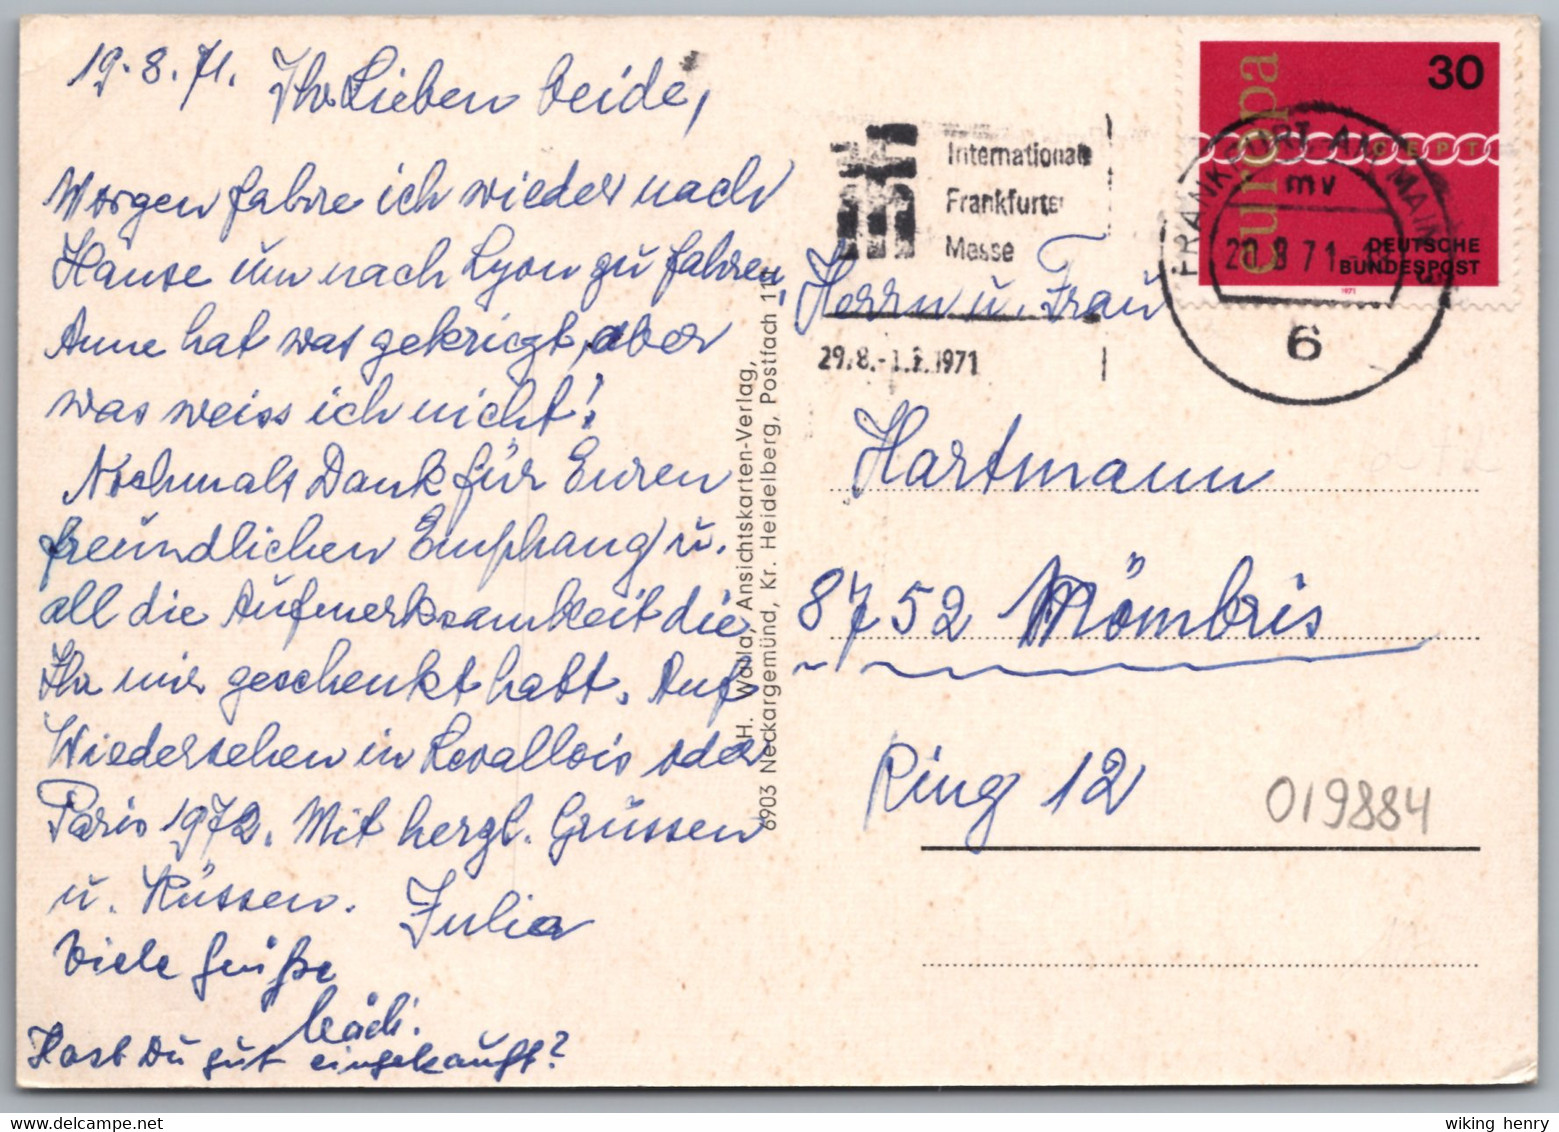 19.8.71.
Ihr Lieben beide,
Morgen fahre ich wieder nach
Hause um nach Lyon zu fahren,
Anne hat was gekriegt, aber
was weiss ich nicht!
Nochmals Dank für Euren
freundlichen Emphang u.
all die Aufmerksamkeit die
Ihr mir geschenkt habt. Auf
Wiedersehen in Levallois oder
Paris 1972. Mit herzl. Grüssen
u. Küssen. Julia
Viele Grüße
Mädi.
Hast Du gut eingekauft?
H. Waila, Ansichtskarten-Verlag,
6903 Neckargemünd, Kr. Heidelberg, Postfach 11
Internationale
Frankfurter
Messe
29.8.-1.9.1971
europa
30
CEPT
DEUTSCHE
BUNDESPOST
1971
FRANKFURT AM MAIN
mv
20.8.71
6
Herrn u. Frau
Hartmann
8752 Mömbris
Ring 12
019884
wiking henry